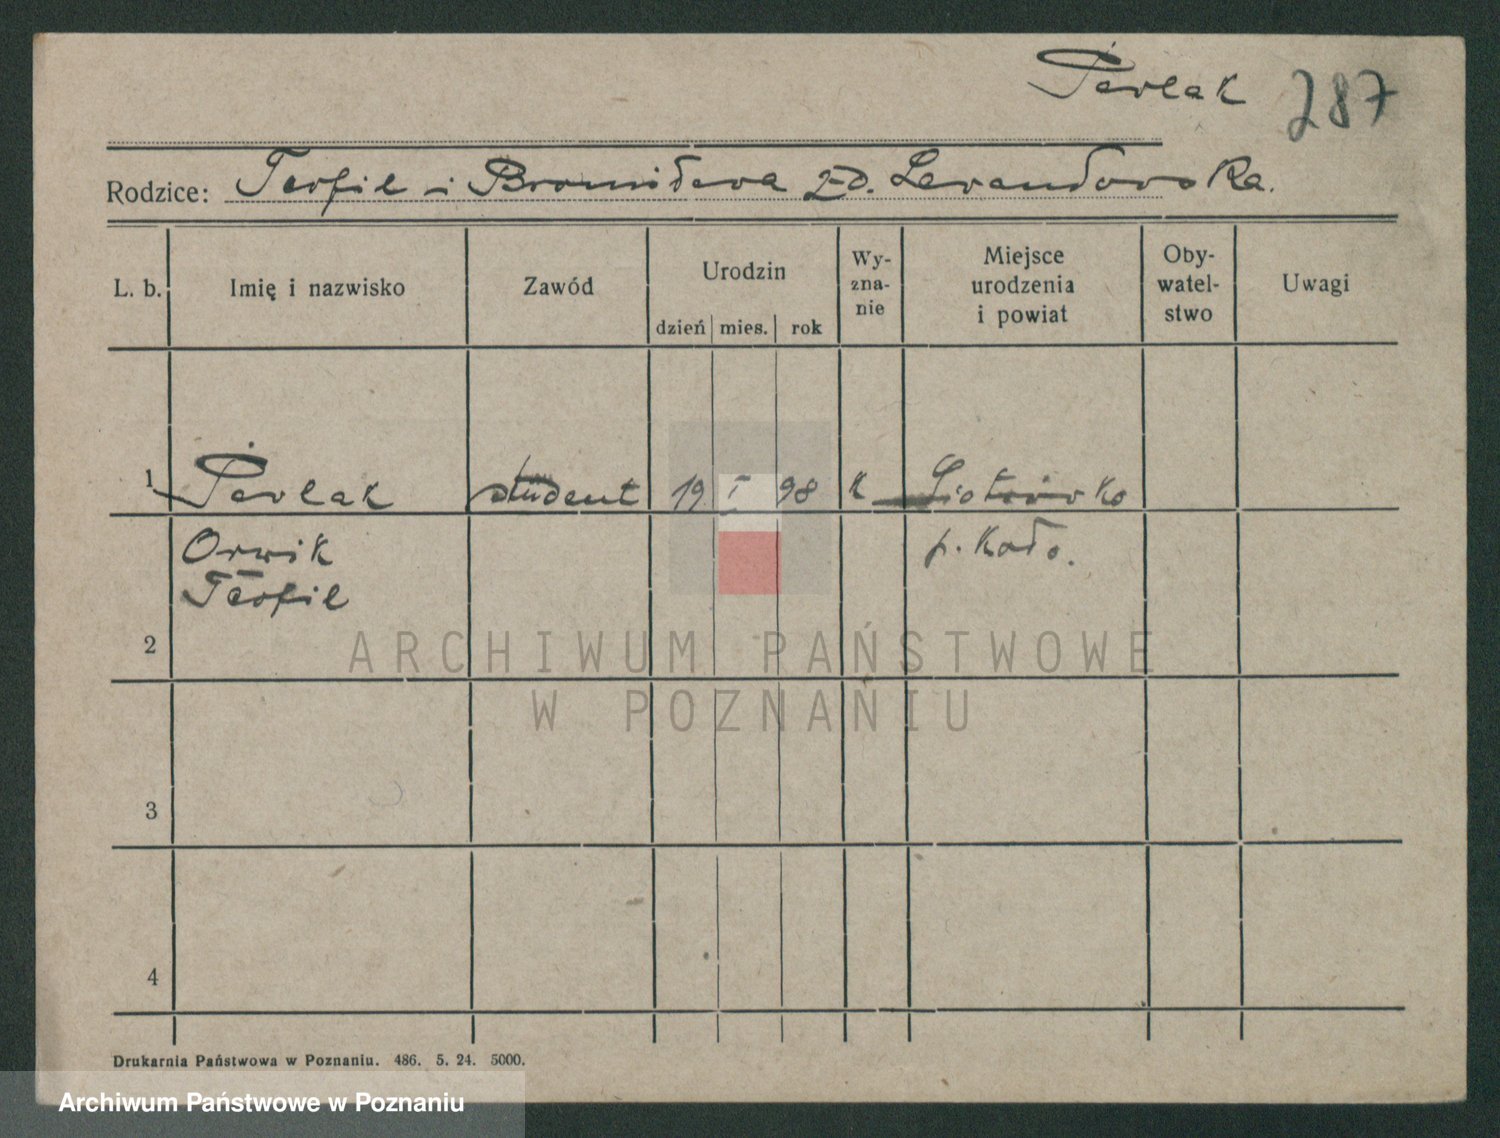 Pawlak 287
Rodzice: Teofil i Bronisława z d. Lewandowska.
L. b. Imię i nazwisko Zawód Urodzin dzień mies. rok Wy-zna-nie Miejsce urodzenia i powiat Oby-watel-stwo Uwagi
1 Pawlak student 19 I 98 k
Orwik p. Koło.
Teofil
2
ARCHIWUM PAŃSTWOWE
W POZNANIU
3
4
Drukarnia Państwowa w Poznaniu. 486. 5. 24. 5000.
Archiwum Państwowe w Poznaniu